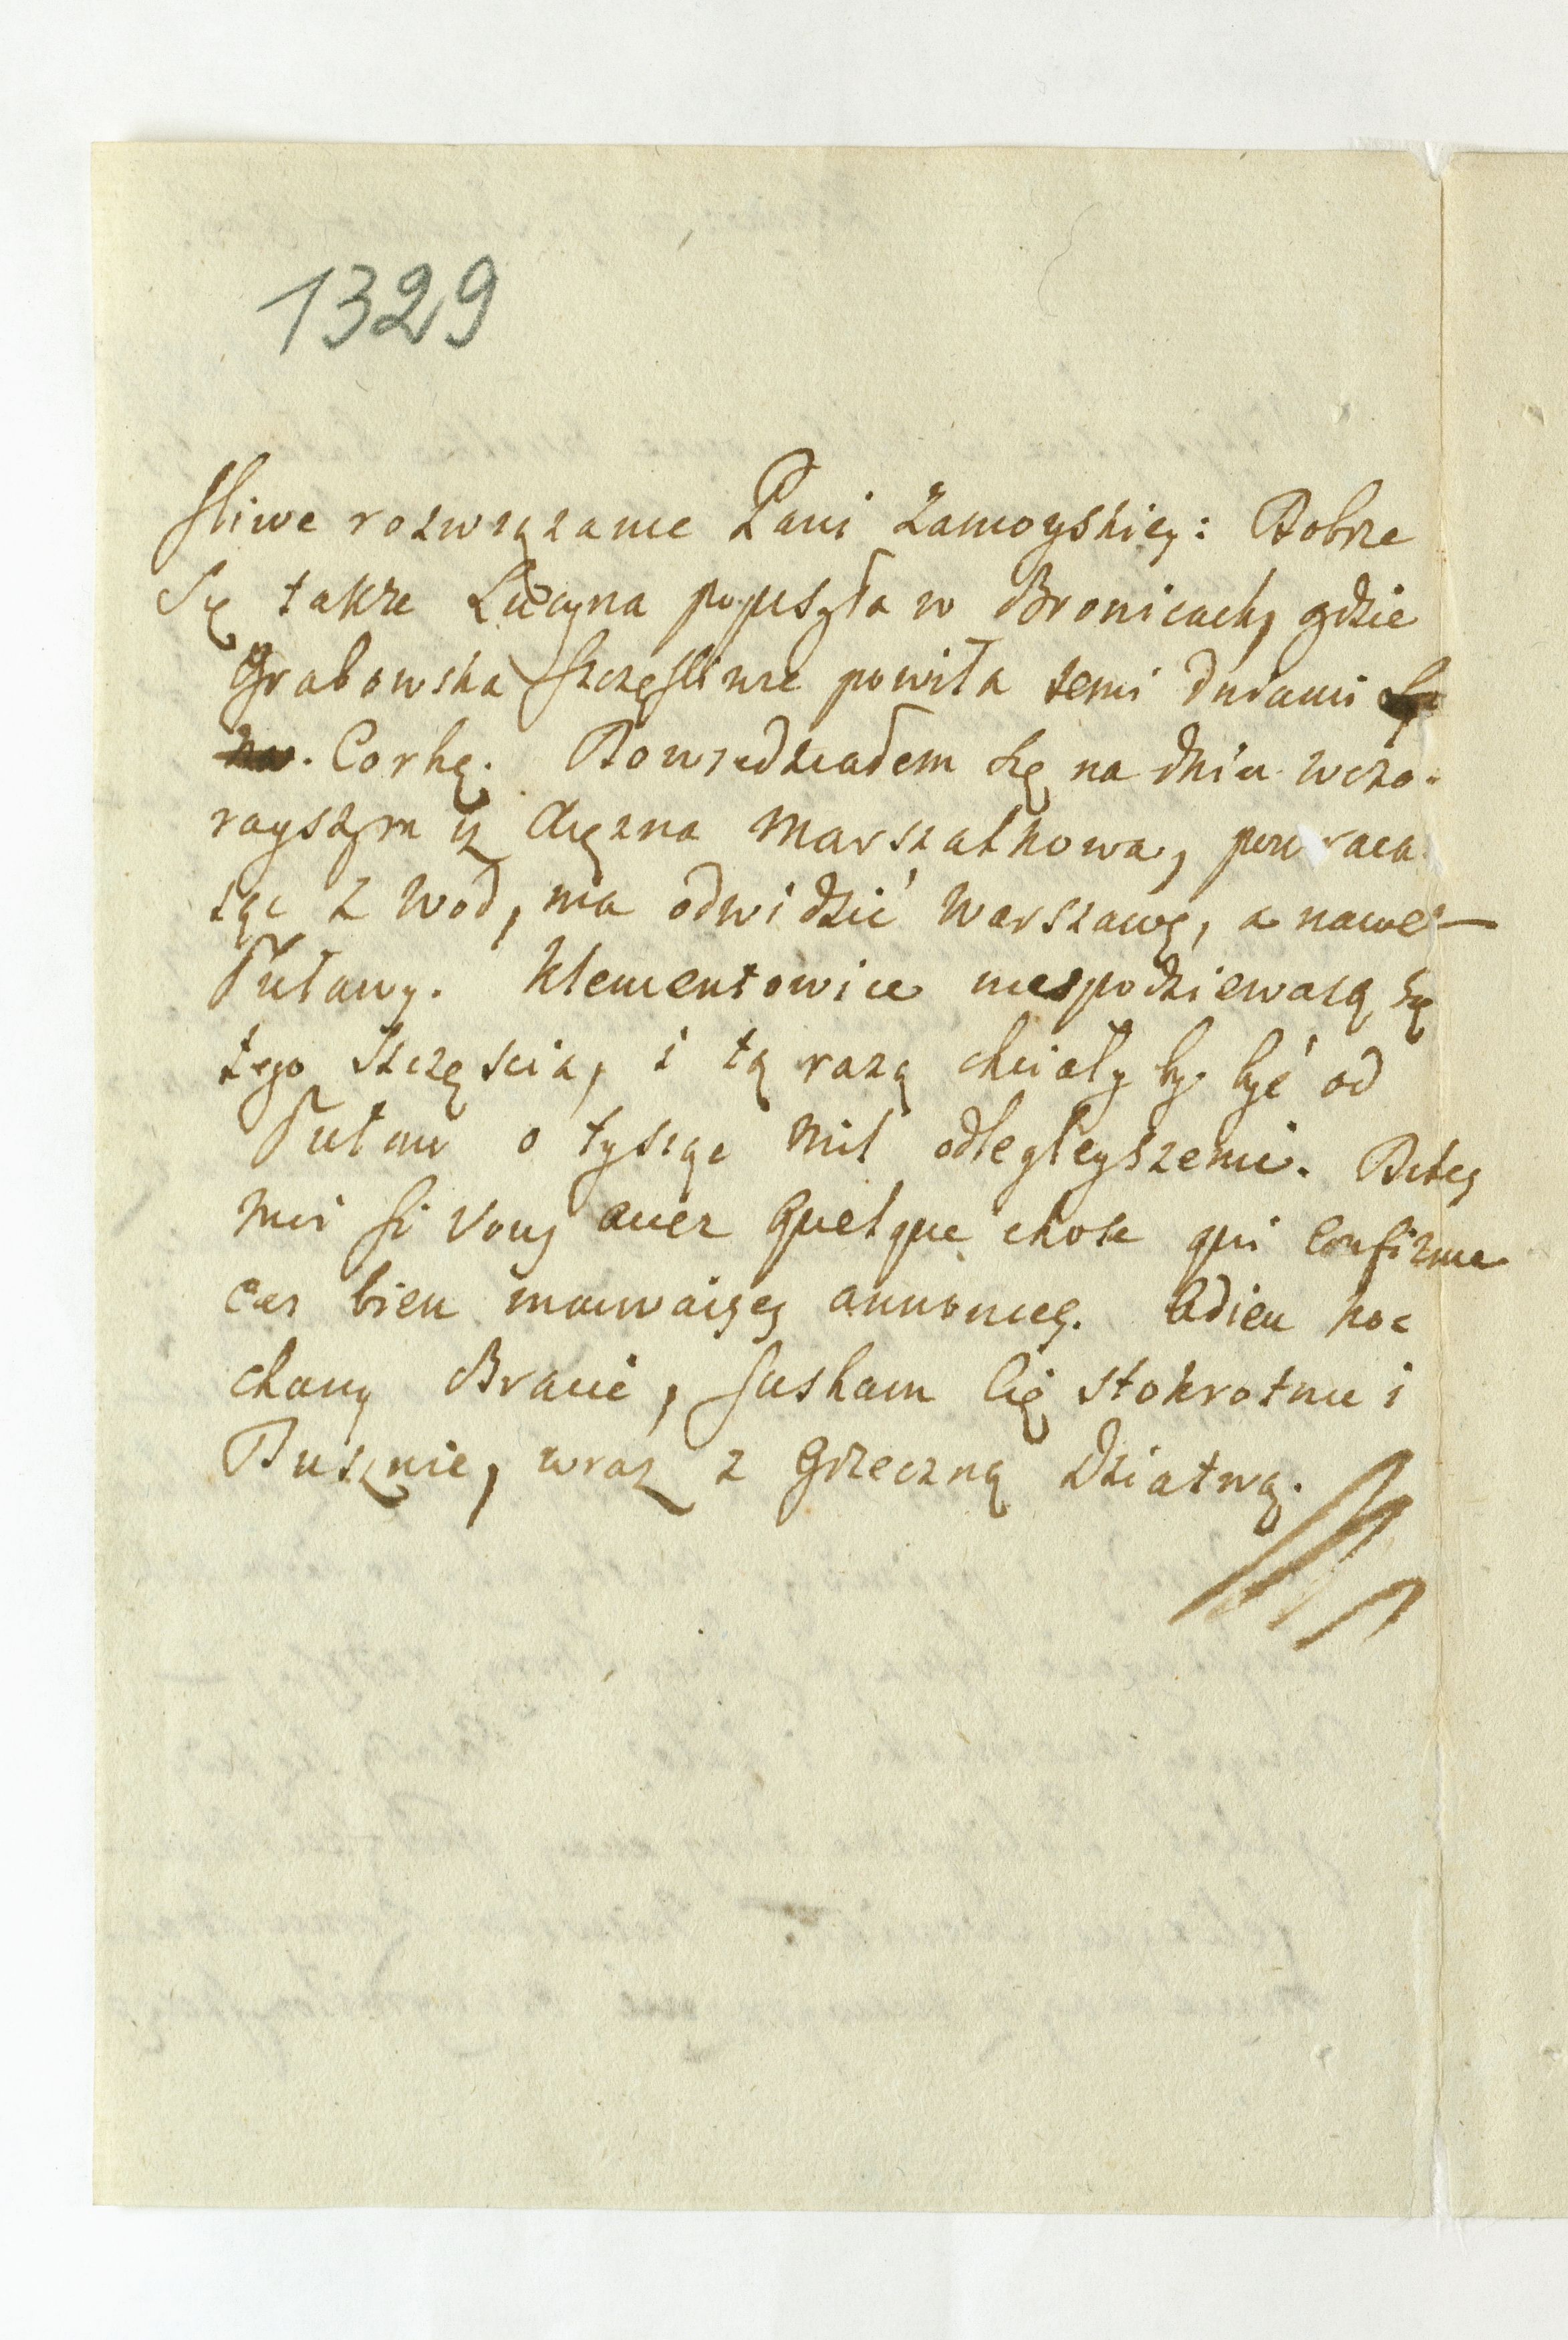 1329
sliwe rozwiązanie Pani Zamoyskiey: Dobrze
Się także Lucyna popisyła w Bronicach, gdzie
Grabowska szczęśliwie powiła temi dniami
Corkę. Dowiedziałem Się na dniu wczo-
rayszym iż Xiężna Marszałkowa, powraca
iąc z wod, ma odwidzić Warszawę, a nawet
Puławy. Klementowice niespodziewaią Się
tego szczęścia, i tą razą chciały by być od
Puław o tysiąc mil odległeyszemi. Dites
moi si vous avez quelque chose qui confirme
ces bien mauvaises annonces. Adieu ko-
chany Bracie, sciskam Cię stokrotnie i
Dusznie, wraz z grzeczną Dziatwą.